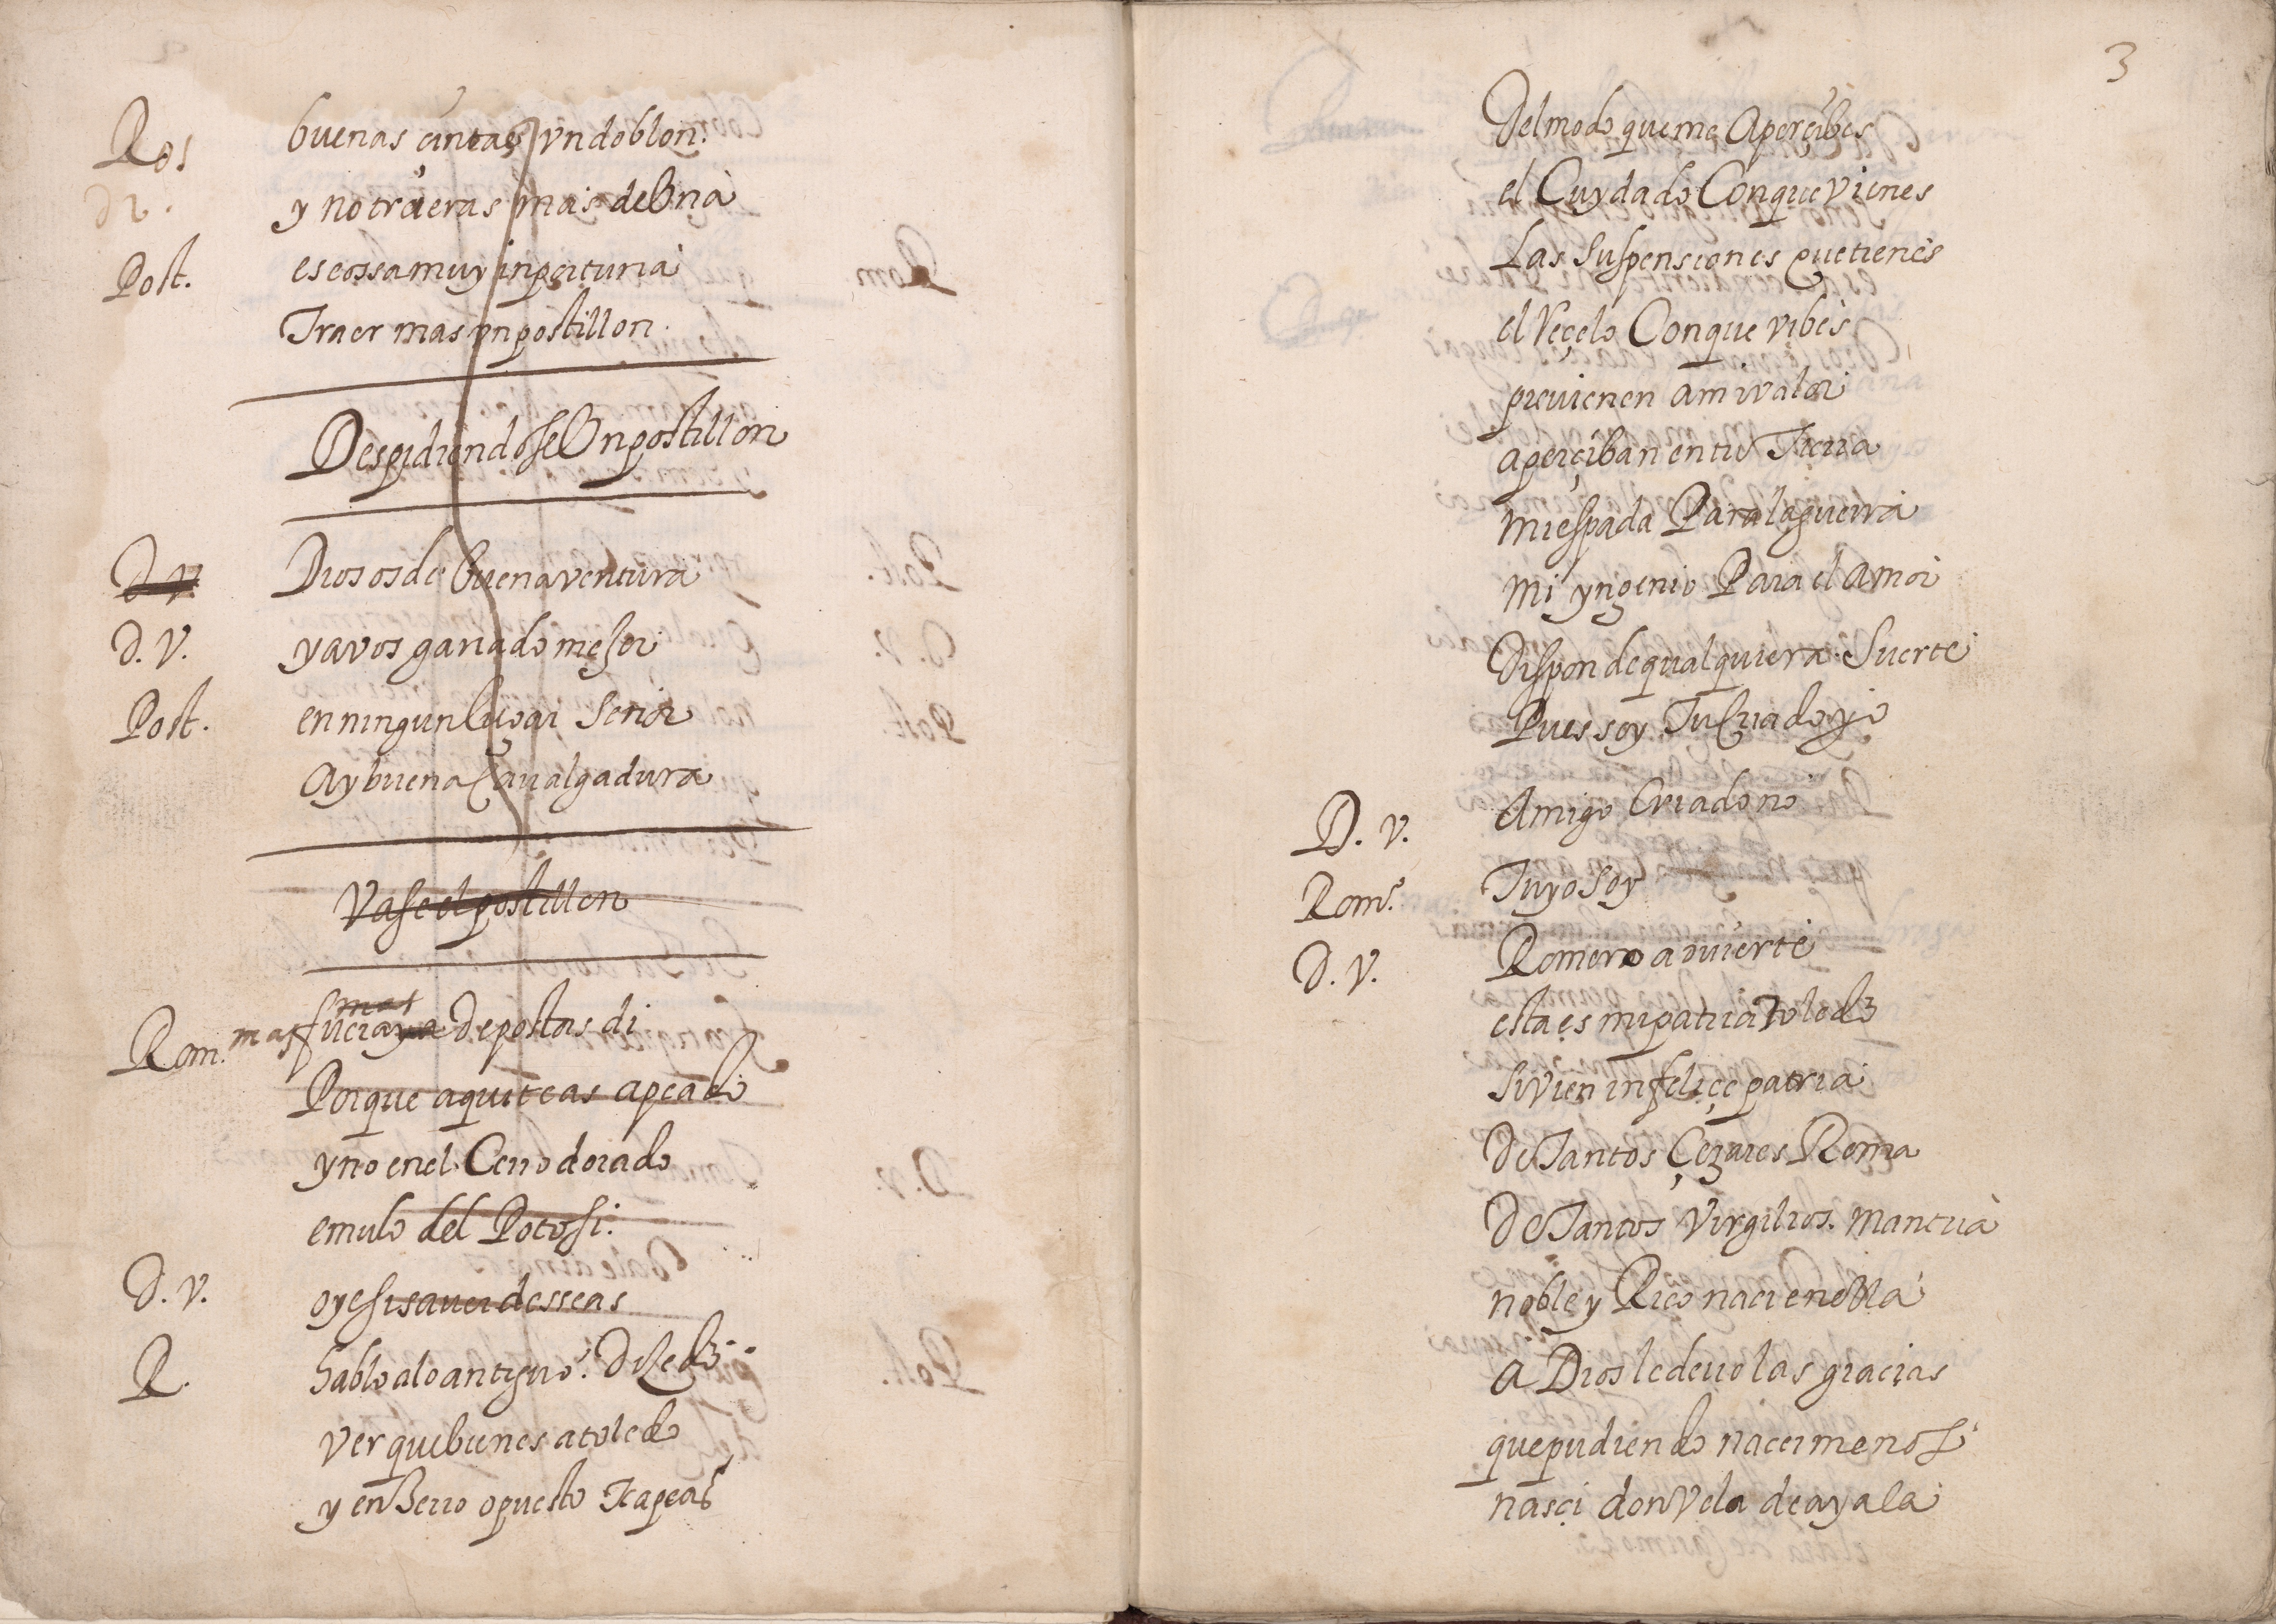 Ros buenas çintas vn doblon.
dr. y no traeras mas de Vna
Post. es cossa muy inportuna
Traer mas vn postillon.
Despidiendose Vn postillon
D. V. Dios os de buena ventura
D. V. y a vos ganado mejor
Post. en ningun lugar Señor
Ay buena Caualgadura
Vase el postillon
mas
Rom. mas sucia ya de postas di
Porque aqui te as apeado
y no en el Cerro dorado
emulo del Potosi.
D. V. oye si sauer desseas
R. hablo a lo antiguo. Di Ledo
Ver que bienes a toledo
y en Berro opuesto te apeas
3
Del modo que me Aperçibes
el Cuydado Con que vienes
Las Suspensiones que tienes
el Reçelo Con que vibes
preuienen a mi valor
aperçiban en tu Tierra
mi espada Para la guerra
mi yngenio Para el amor
Dispon de qualquiera Suerte
Pues soy Tu Criado yo
D. V. Amigo Criado no
Romo. Tuyo soy
D. V. Romero aduierte
esta es mi patria Toledo
Si vien infeliçe patria
De Tantos Çezares Roma
De Tantos Virgilios. Mantua
noble y Rico naci en ella
a Dios le deuo las graçias
que pudiendo nacer menos
nasçi don Vela de ayala